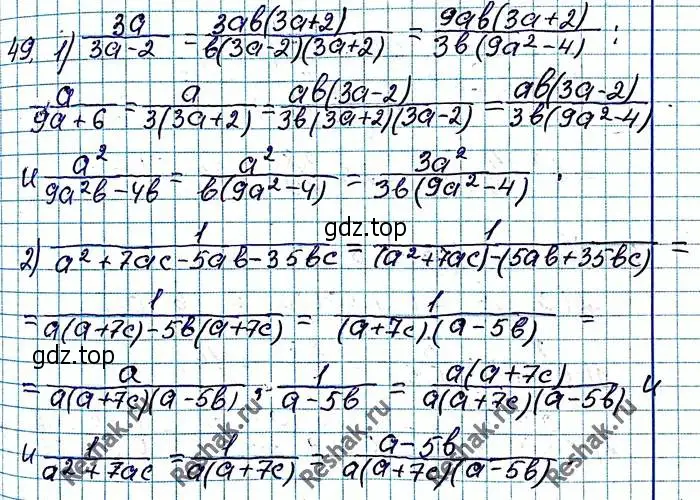 49. 1) 3a/(3a-2) = 3ab(3a+2)/(b(3a-2)(3a+2)) = 9ab(3a+2)/(3b(9a²-4)) ;
a/(9a+6) = a/(3(3a+2)) = ab(3a-2)/(3b(3a+2)(3a-2)) = ab(3a-2)/(3b(9a²-4))
и a²/(9a²b-4b) = a²/(b(9a²-4)) = 3a²/(3b(9a²-4)) .
gdz.top
2) 1/(a²+7ac-5ab-35bc) = 1/((a²+7ac)-(5ab+35bc)) =
= 1/(a(a+7c)-5b(a+7c)) = 1/((a+7c)(a-5b)) =
gdz.top
= a/(a(a+7c)(a-5b)) ; 1/(a-5b) = a(a+7c)/(a(a+7c)(a-5b)) и
и 1/(a²+7ac) = 1/(a(a+7c)) = a-5b/(a(a+7c)(a-5b)) .
Reshak.ru
Reshak.ru
Reshak.ru
Reshak.ru